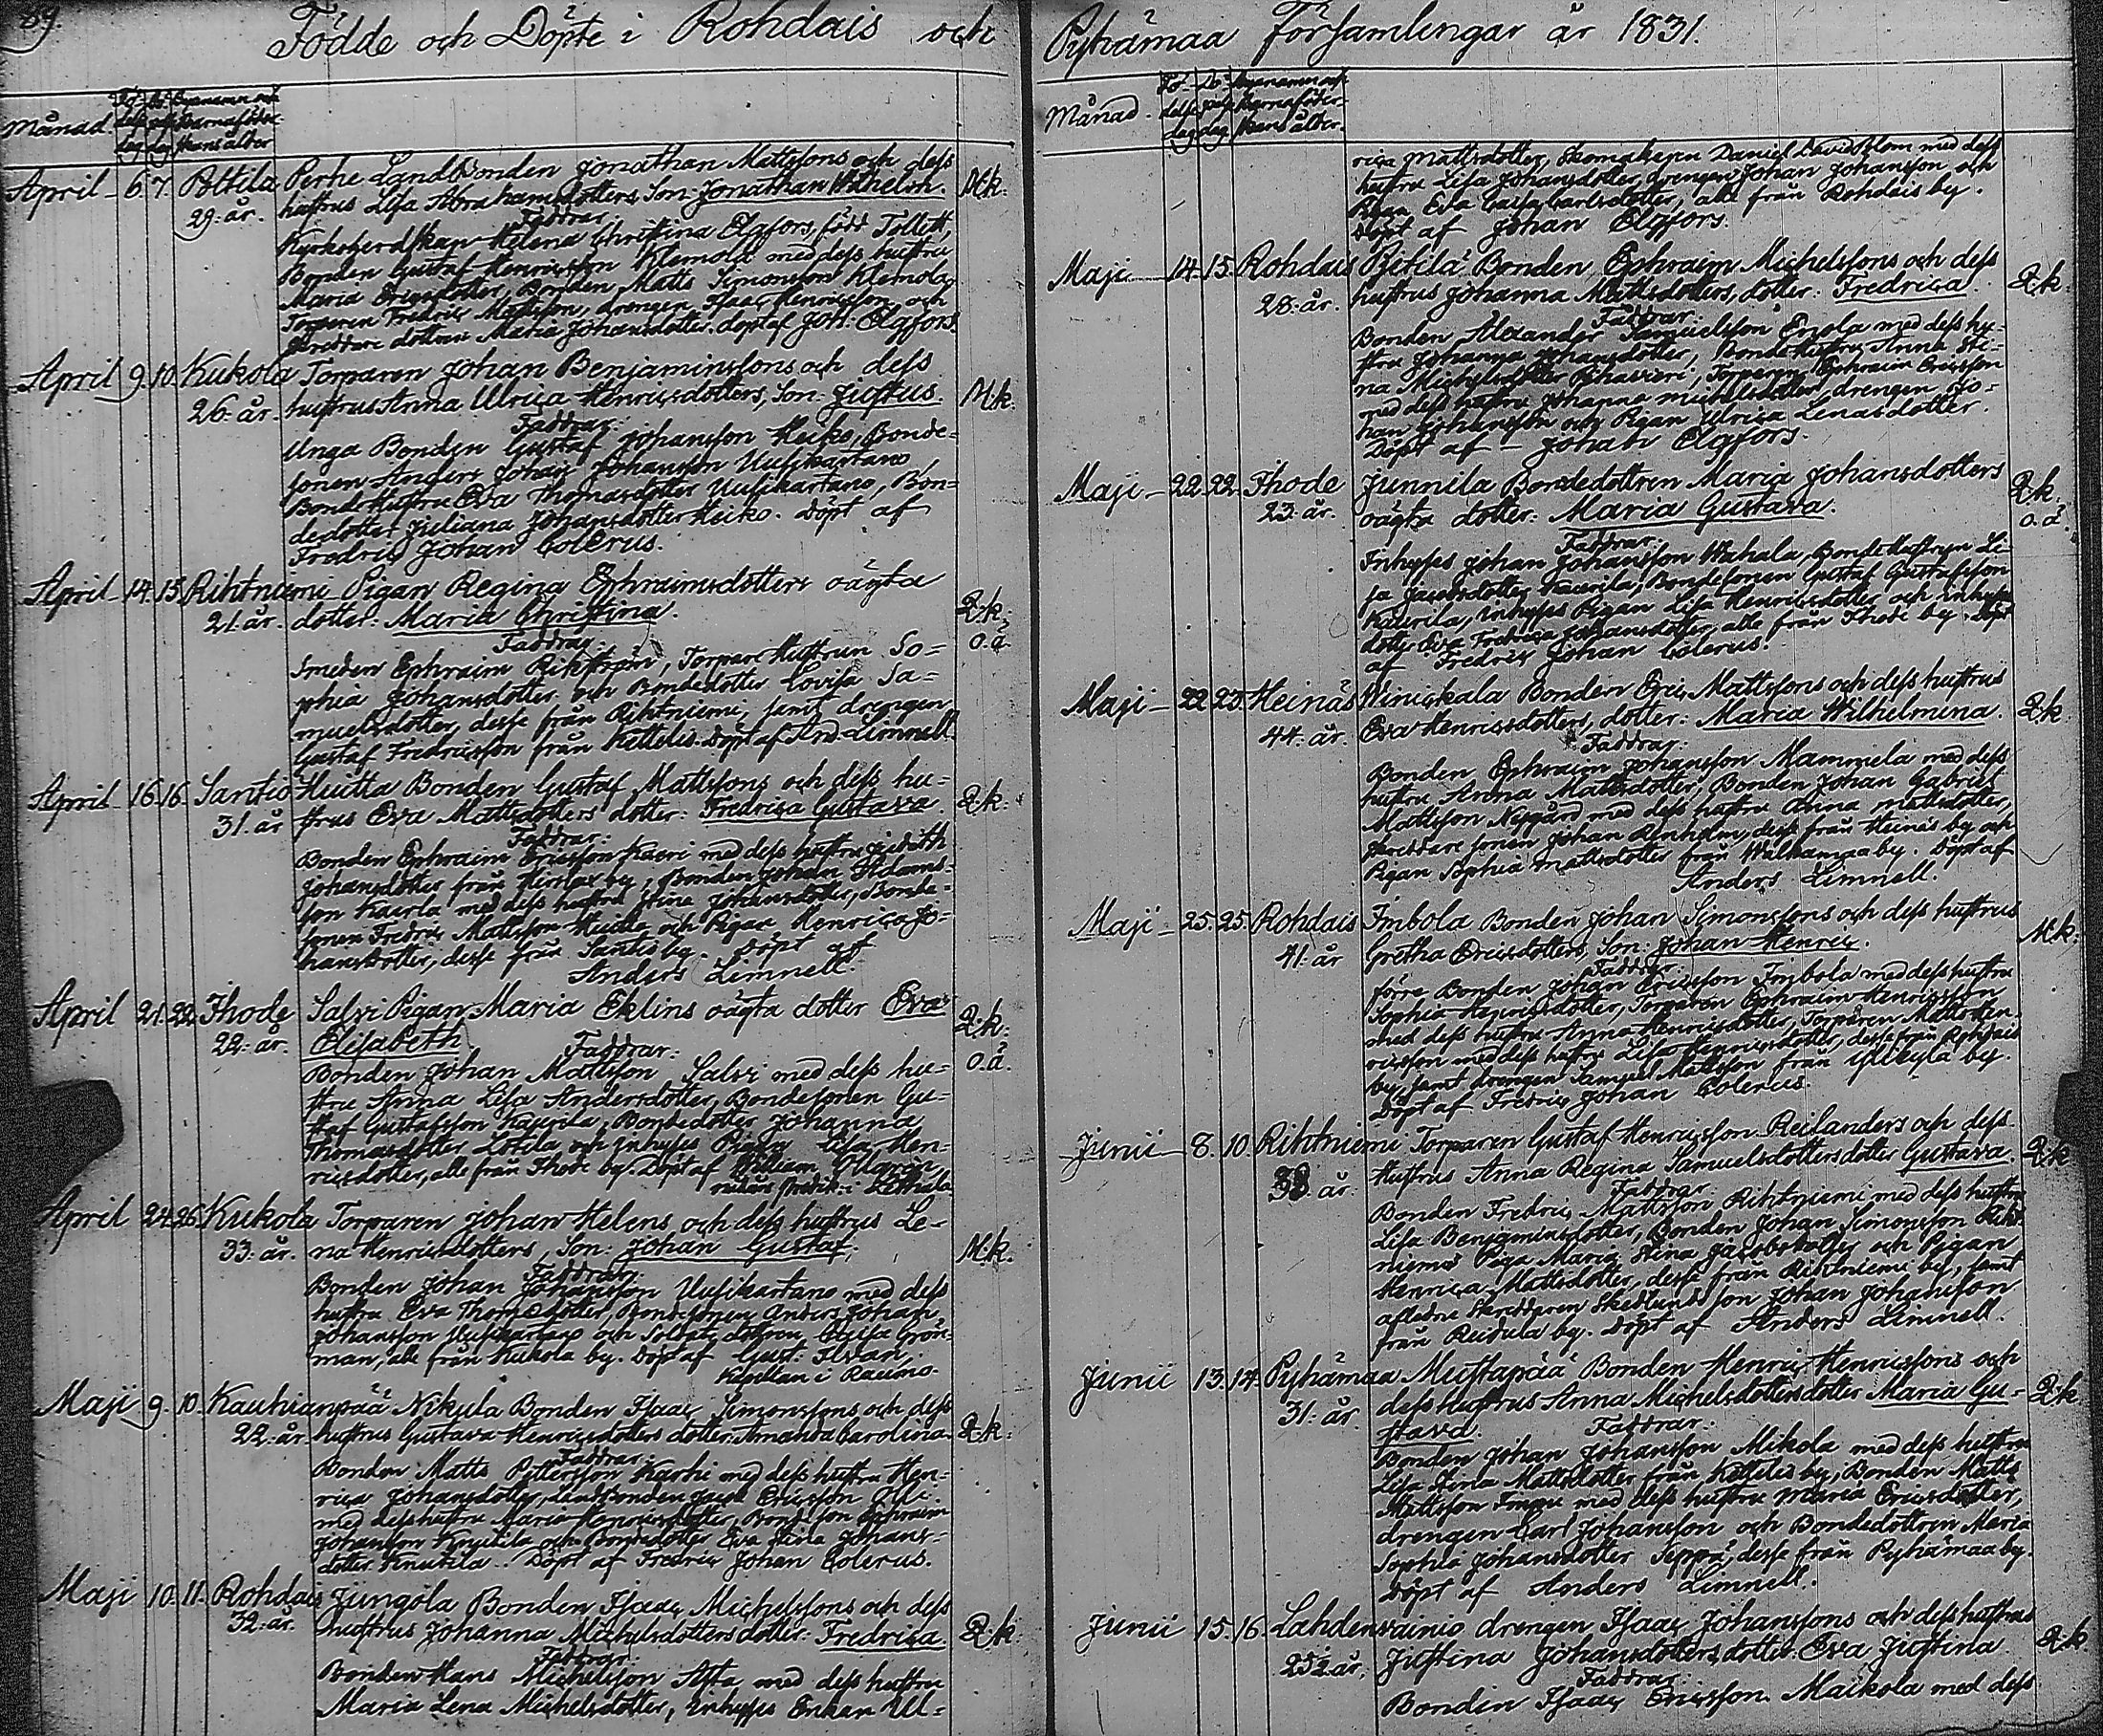 89
Födde och Döpte i Rohdais och
Månad. Fö- delse dag Dö- pelse dag Byanamn och Barnaföder- skans ålder
April 6. 7. Pottila Perhe Landbonden Jonathan Mattssons och dess
29. år. hustrus Lisa Abrahamsdotters, Son: Jonathan Wilhelm. M.k.
Faddrar:
Kyrkoherdskan Helena Christina Elgfors, född Tollett,
Bonden Gustaf Henricsson Klemola med dess hustru
Maria Ericsdotter, Bonden Matts Simonsson Klemola,
Torparen Fredric Mattsson, drengen Isaac Henricsson och
Skreddare dottren Maria Johansdotter. döpt af Joh: Elgfors.
April 9. 10. Kukola Torparen Johan Benjaminssons och dess
26. år. hustrus Anna Ulrica Henricsdotters, Son: Justus. M.k.
Faddrar:
Unga Bonden Gustaf Johansson Heiko, Bonde-
sonen Anders Johan Johansson Uusikartano
Bonde Hustru Eva Thomasdotter Uusikartano, Bon-
dedotter Juliana Johansdotter Heiko. Döpt af
Fredric Johan Colerus.
April 14. 15. Rihtniemi Pigan Regina Ephraimsdotters oägta
21. år. dotter: Maria Christina. Q.k. o.ä.
Faddrar:
Smeden Ephraim Rikström, Torpare Hustrun So-
phia Johansdotter och Bondedotter Lovisa Sa-
muelsdotter, desse från Rihtniemi, samt drengen
Gustaf Fredricsson från Kettelis. Döpt af And. Limnell.
April 16. 16. Santio Huitta Bonden Gustaf Mattssons och dess hu-
31. år strus Eva Mattsdotters dotter: Fredrica Gustava Q.k.
Faddrar:
Bonden Ephraim Ericsson Kaeri med dess hustru Judith
Johansdotter från Hirslax by, Bonden Johan Adams-
son Kaurla med dess hustru Stina Johansdotter, Bonde-
sonen Fredric Mattsson Huitta och Pigan Henrica Jo-
hansdotter, desse från Santio by. Döpt af
Anders Limnell.
April 21. 22. Ihode Salvi Pigan Maria Eklins oägta dotter Eva
22. år. Elisabeth. Q.k. o.ä.
Faddrar:
Bonden Johan Mattsson Salvi med dess hu-
stru Anna Lisa Andersdotter, Bondesonen Gu-
staf Gustafsson Kaurila, Bondedotter Johanna
Thomasdotter Lotila och Inhyses Pigan Lisa Hen-
ricsdotter, alle från Ihode by. Döpt af William
April 24. 26. Kukola Torparen Johan Helens och dess hustrus Le-
33. år. na Henricsdotters, Son: Johan Gustaf. M.k.
Faddrar:
Bonden Johan Johansson Uusikartano med dess
hustru Eva Thomasdotter, Bondesonen Anders Johan
Johansson Uusikartano och Soldats dottren Grön-
man, alle från Kukola by. Döpt af Gust:
Kapellan i Raumo.
Maji 9. 10. Kauhianpää Nikula Bonden Isaac Simonssons och dess
22. år. hustrus Gustava Henricsdotters dotter Amanda Carolina. Q.k.
Faddrar:
Bonden Matts Pettersson Karhi med dess hustru Hen-
rica Johansdotter, Landbonden Jacob Ericsson
med dess hustru Maria Henricsdotter, Bondeson Ephraim
Johansson Knutila och Bondedotter Eva Stina Johans-
dotter Knutila. Döpt af Fredric Johan Colerus.
Maji 10. 11. Rohdais Jungola Bonden Isaac Michelssons och dess
32. år. hustrus Johanna Michelsdotters dotter: Fredrica. Q.k.
Faddrar:
Bonden Hans Michelsson Asta med dess hustru
Maria Lena Michelsdotter, Inhyses Enkan Ul-
Pyhämaa Församlingar år 1831.
Månad. Fö- delse dag Dö- pelse dag Byanamn och Barnaföder- skans ålder
rica Mattsdotter, Skomakeren Daniel David Blom med dess
hustru Lisa Johansdotter, drengen Johan Johansson, och
Pigan Eva Caisa Carlsdotter, alle från Rohdais by.
Döpt af Johan Elgfors.
Maji 14. 15. Rohdais Pietilä Bonden Ephraim Michelssons och dess
28. år. hustrus Johanna Mattsdotters, dotter: Fredrica. Q.k.
Faddrar:
Bonden Alexander Samuelsson Erola med dess hu-
stru Johanna Johansdotter, Bonde Hustru Anna Sti-
na Michelsdotter Pihavieri, Torparen Ephraim Ericsson
med dess hustru Johanna Michelsdotter, drengen Jo-
han Johansson och Pigan Ulrica Lenasdotter.
Döpt af Johan Elgfors.
Maji 22. 22. Ihode Junnila Bondedottren Maria Johansdotters
23. år. oägta dotter: Maria Gustava. Q.k. o.ä.
Faddrar:
Inhyses Johan Johansson Wahala, Bonde Hustrun Li-
sa Jacobsdotter Kaurila, Bondesonen Gustaf Gustafsson
Kaurila, Inhyses Pigan Lisa Henricsdotter och Inhyses
dotter Eva Fredrica Johansdotter, alle från Ihode by. Döpt
af Fredric Johan Colerus.
Maji 22. 23. Heinäs Winickala Bonden Eric Mattssons och dess hustrus
44. år. Eva Henricsdotters, dotter: Maria Wilhelmina. Q.k.
Faddrar:
Bonden Ephraim Johansson Mammela med dess
hustru Anna Mattsdotter, Bonden Johan Gabriel
Mattsson Nygård med dess hustru Anna Mattsdotter,
Skreddare sonen Johan Renholm, desse från Heinäs by och
Pigan Sophia Mattsdotter från Walkamaa by. Döpt af
Anders Limnell.
Maji 25. 25. Rohdais Imbola Bonden Johan Simonssons och dess hustrus
41. år Gretha Ericsdotters, Son: Johan Henric. M.k.
Faddrar:
förre Bonden Johan Ericsson Imbola med dess hustru
Sophia Henricsdotter, Torparen Ephraim Henricsson
med dess hustru Anna Henricsdotter, Torparen Matts Hen-
ricsson med dess hustru Lisa Henricsdotter, desse från Rohdais
by, samt drengen Samuel Mattsson från Ylikylä by.
Döpt af Fredric Johan Colerus.
Junii 8. 10. Rihtniemi Torparen Gustaf Henricsson Reilanders och dess
38 år. Hustrus Anna Regina Samuelsdotters dotter Gustava. Q.k.
Faddrar:
Bonden Fredric Mattsson Rihtniemi med dess hustru
Lisa Benjaminsdotter, Bonden Johan Simonsson Riht-
niemi Piga Maria Stina Jacobsdotter och Pigan
Henrica Mattsdotter, desse från Rihtniemi by, samt
afledne Skreddaren Skedlunds son Johan Johansson
från Reidula by. Döpt af Anders Limnell.
Junii 13. 14. Pyhämaa Mustapää Bonden Henric Henricssons och
31. år. dess Hustrus Anna Michelsdotters dotter Maria Gu-
stava. Q.k.
Faddrar:
Bonden Johan Johansson Mikola med dess hustru
Lisa Stina Mattsdotter från Kettelis by, Bonden Matts
Mattsson med dess hustru Maria Ericsdotter,
drengen Carl Johansson och Bondedottren Maria
Sophia Johansdotter Seppä, desse från Pyhämaa by.
Döpt af Anders Limnell.
Junii 15. 16. Lahdenvainio drengen Isaac Johanssons och dess hustrus
25½ år. Justina Johansdotters, dotter: Eva Justina. Q.k.
Faddrar:
Bonden Isaac Ericsson Maikola med dess